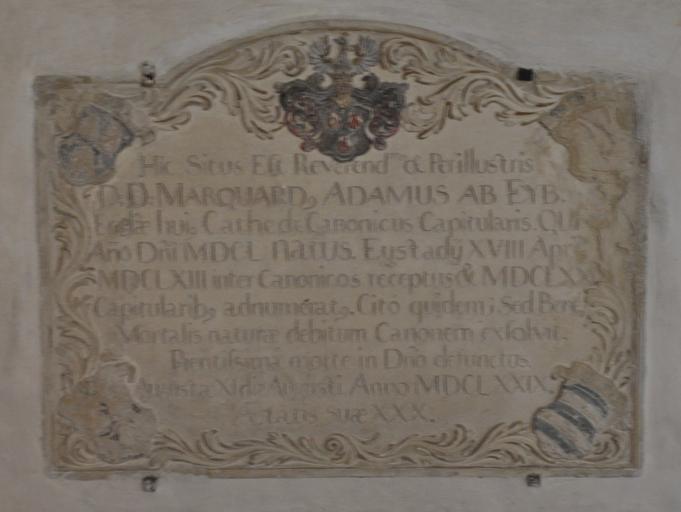 Hic Situs Est Reverend.ᵐᵘˢ & Perillustris
D. D. MARQUARD, ADAMUS AB EYB.
hui, Cathed. Canonicus Capitularis. QUI
Año Dñi MDCL NATUS. Eystadij XVIII Apr
MDCLXIII inter Canonicos receptus & MDCLXX
Capitularib, adnumerat,. Citò quidem; Sed Bene,
Mortalis naturæ debitum Canonem exsolvit.
Pientissima morte in Dño defunctus.
Augustæ XI die Augusti Anno MDCLXXIX
Ætatis suæ XXX.